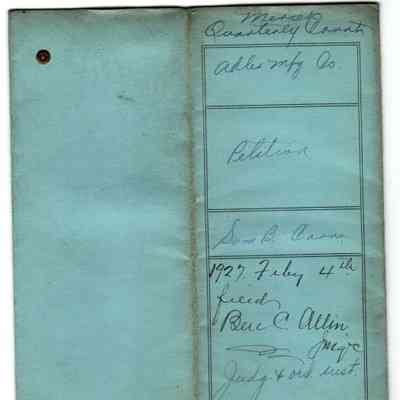 Mercer
Quarterly Court
Adler Mfg Co.
Petition
1927. Feby 4th
filed
Ben C. Allin
Judg & ord inst.